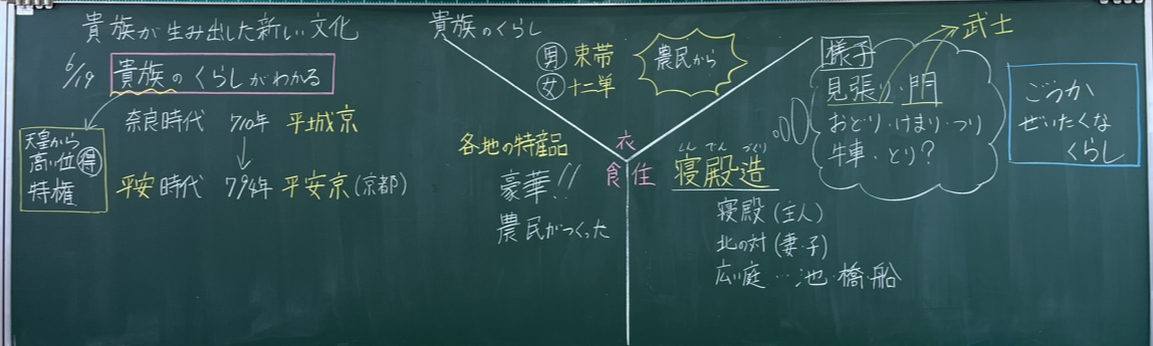 貴族が生み出した新しい文化
6/19
貴族のくらしがわかる
天皇から
高い位 得
特権
奈良時代 710年 平城京
↓
平安時代 794年 平安京(京都)
貴族のくらし
男 束帯
女 十二単
農民から
衣
食 住
各地の特産品
豪華!!
農民がつくった
しん でん づくり
寝殿造
寝殿(主人)
北の対(妻・子)
広い庭…池・橋・船
武士
様子
見張り・門
おどり・けまり・つり
牛車・とり?
ごうか
ぜいたくな
くらし